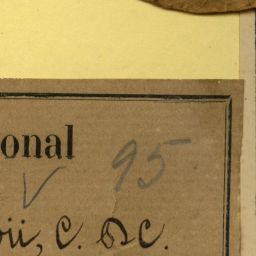 onal 95.
ii, C. DC.